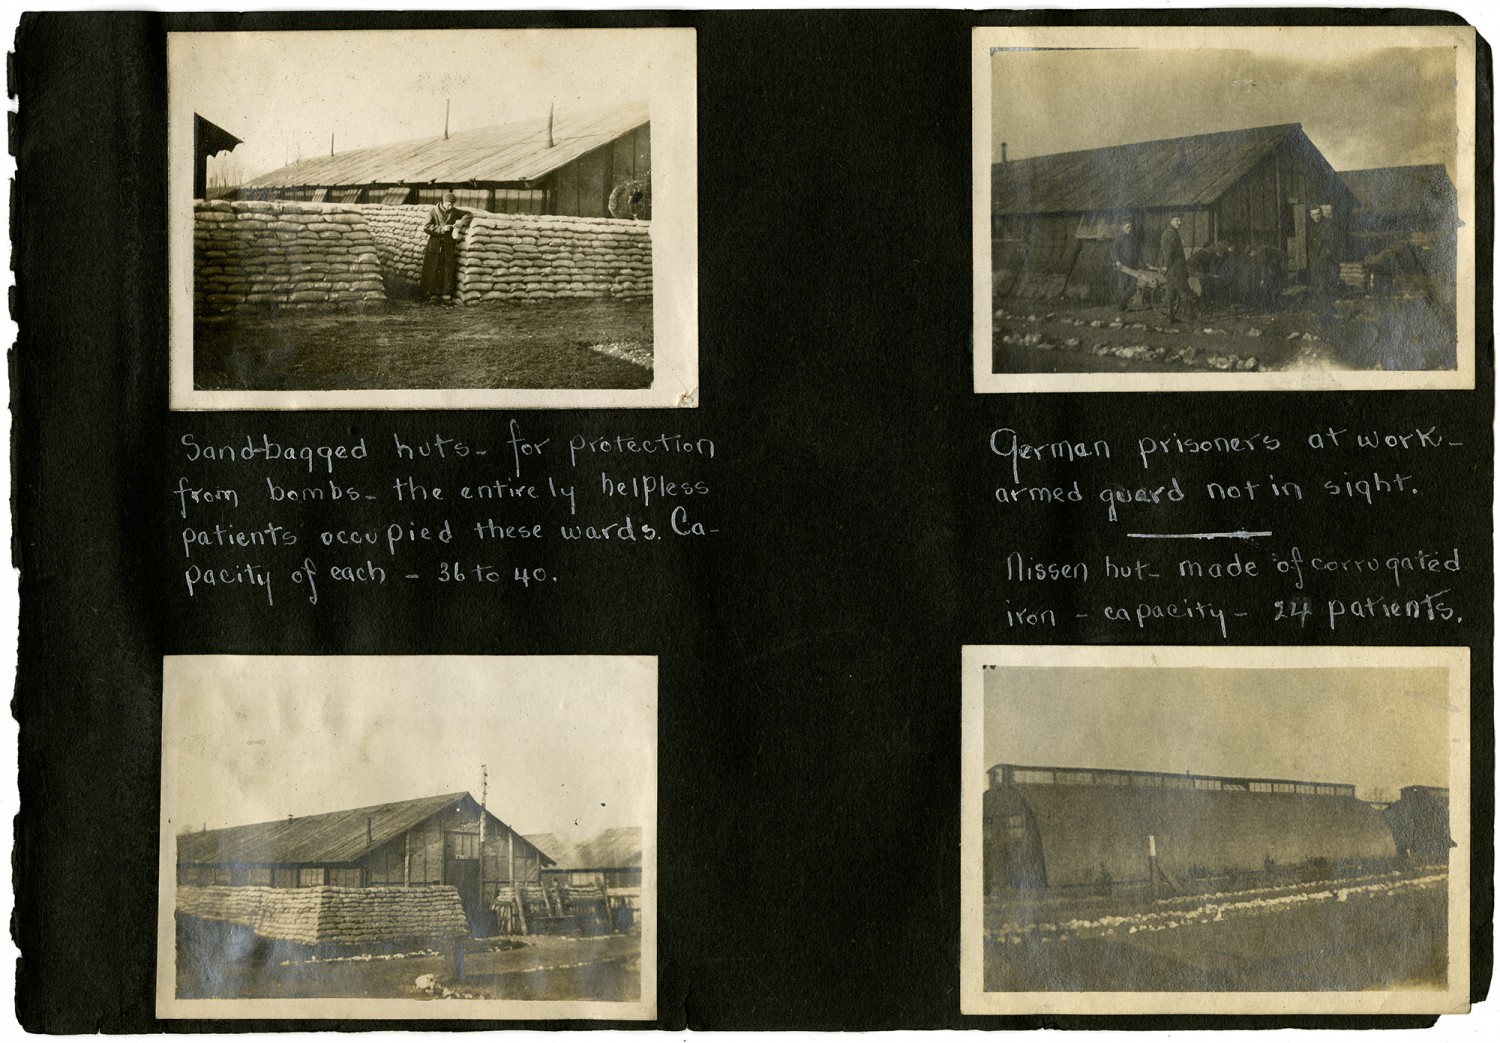 Sand-bagged huts - for protection
from bombs - the entirely helpless
patients occupied these wards. Ca-
pacity of each - 36 to 40.
German prisoners at work -
armed guard not in sight.
Nissen hut - made of corrugated
iron - capacity - 24 patients.